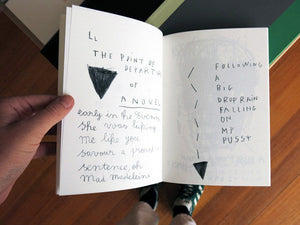 LL
THE POINT OF
DEPARTU
OF
A NOVEL
early in the
She was liping
Me like you
savour a
sentence, oh
Mad Madeleine
FOLLOWING
A
BIG
DROP RAIN
FALLING
ON
MP
PUSSY